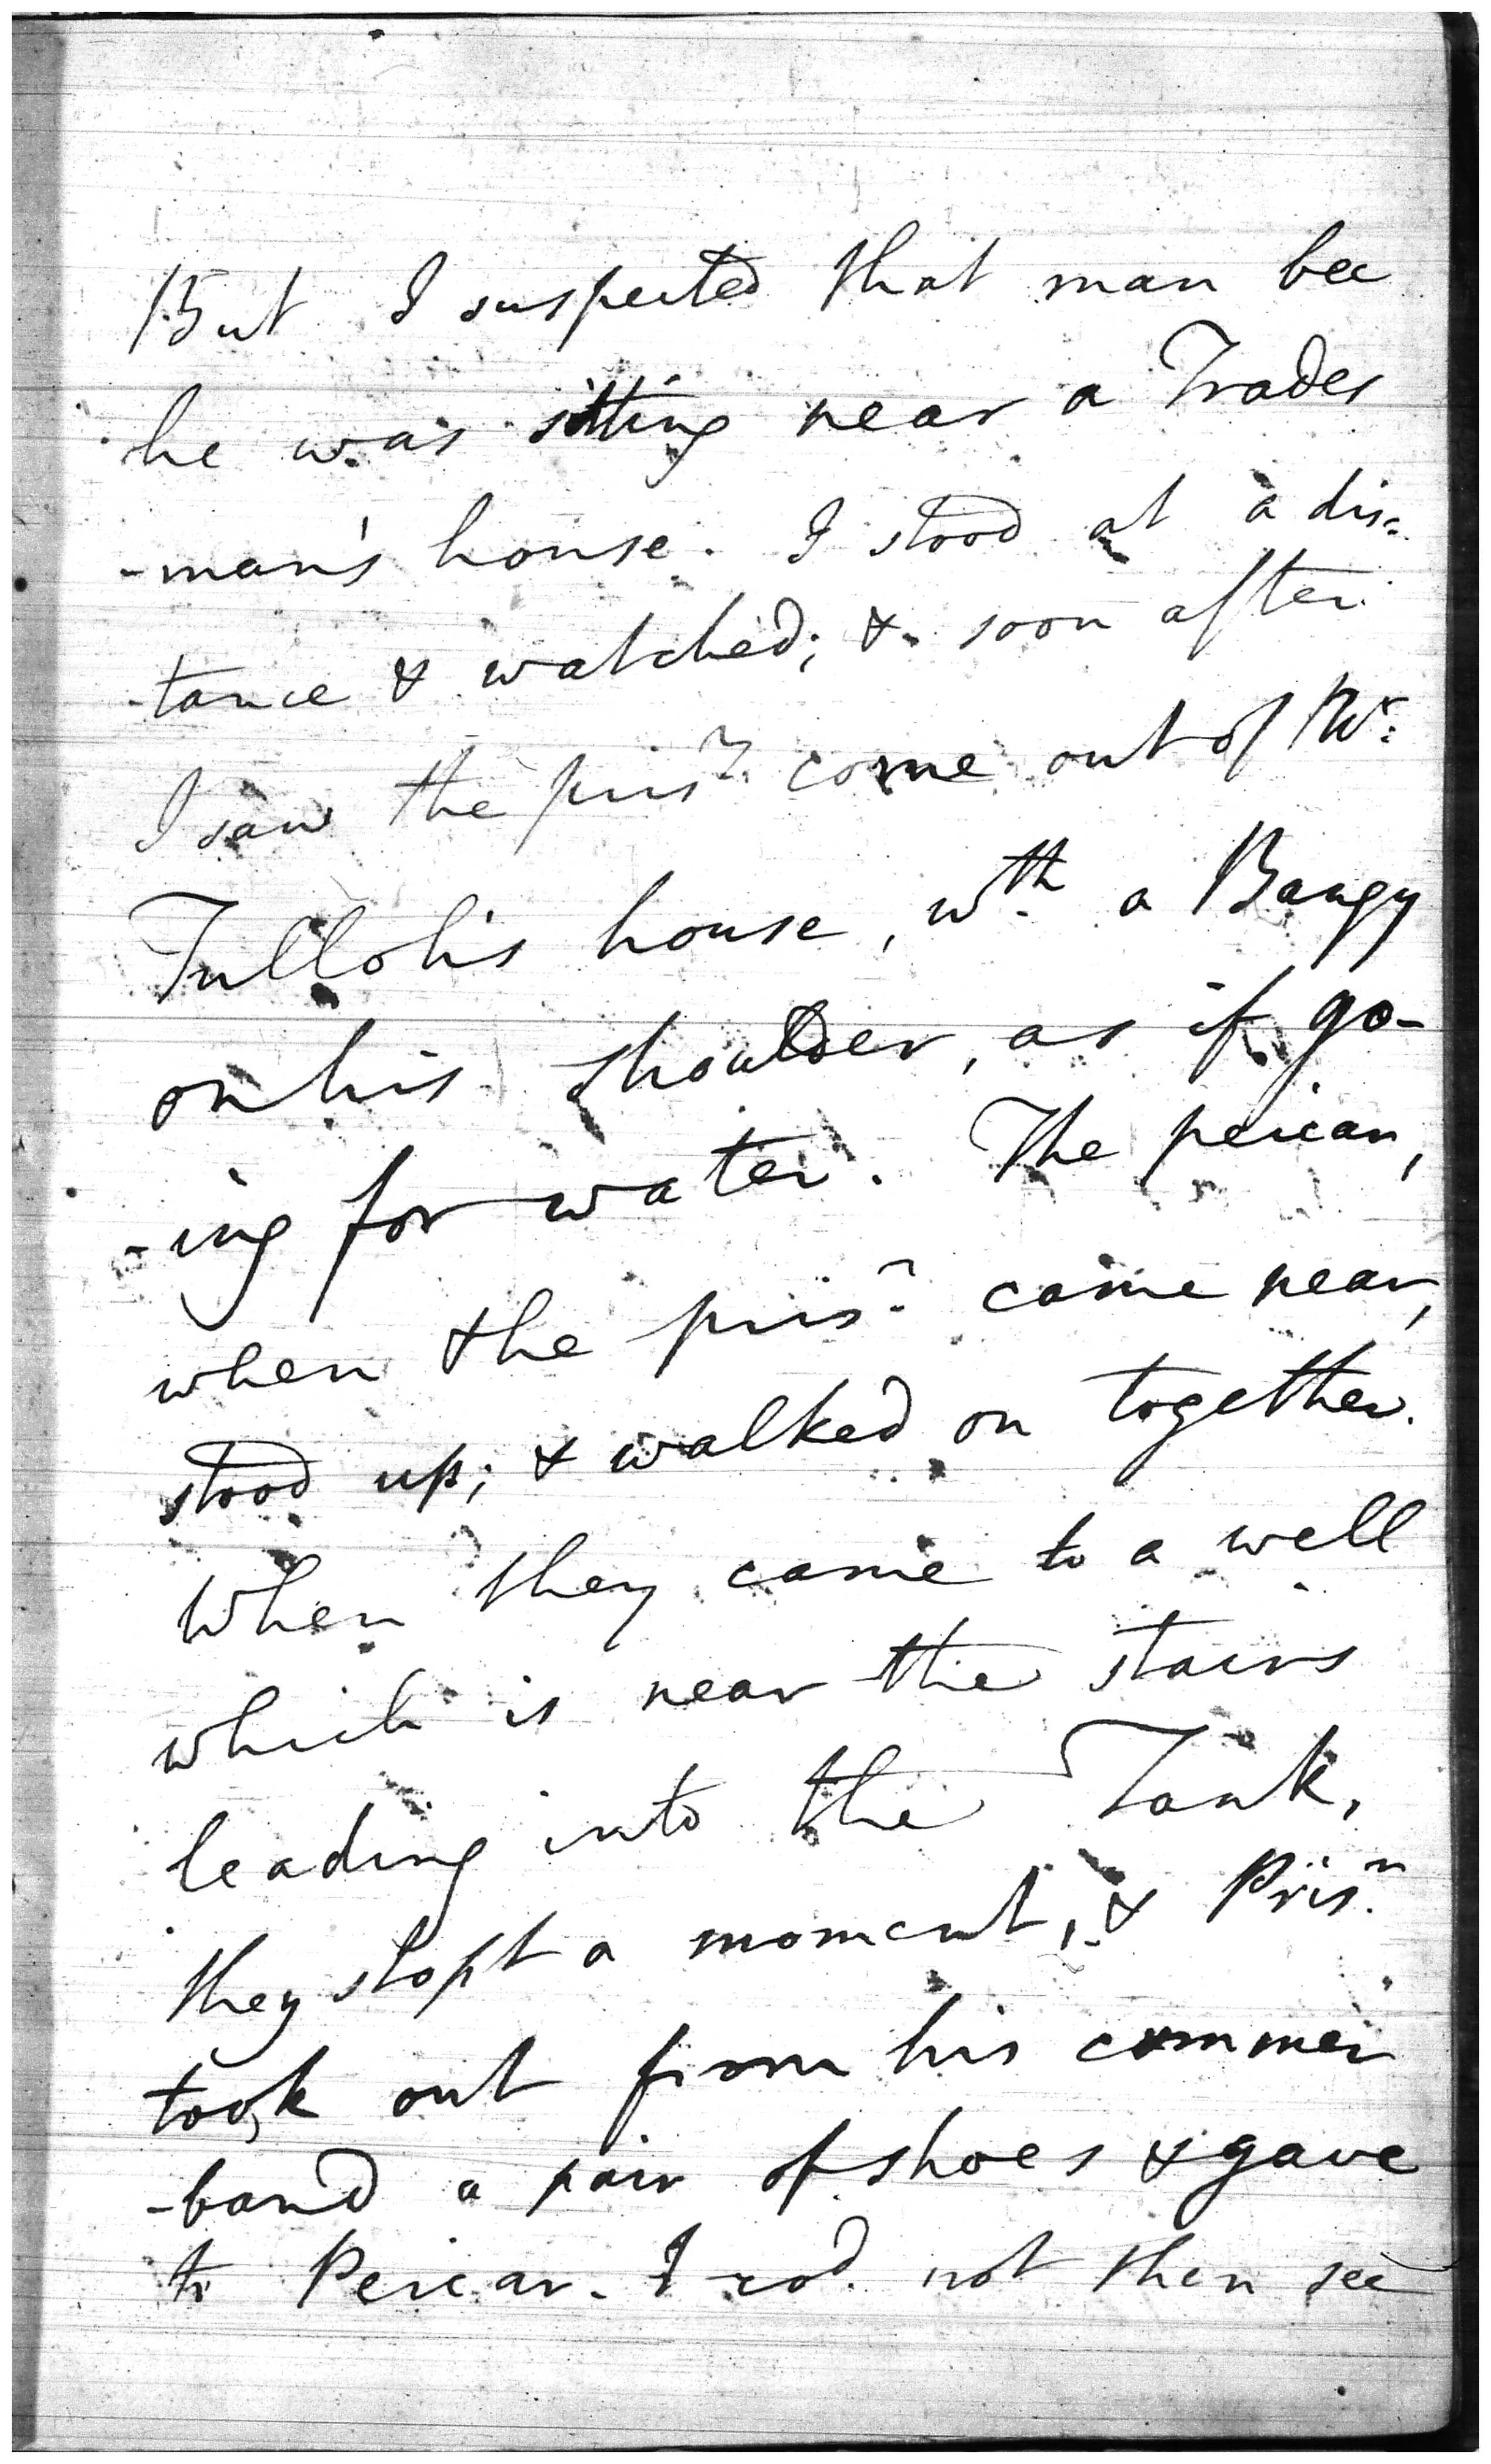 But I suspected that man bec
he was sitting near a Trades
-man's house. I stood at a dis=
-tance & watched; & soon after
I saw the prisr. come out of Mr:
Tulloh's house, wth. a Bangy
on his shoulder, as if go-
-ing for water. The peican,
when the prisr. came near,
stood up; & walked on together.
When they came to a well
which is near the stairs
leading into the Tank,
they stopt a moment, & Prisn.
took out from his cummer
-band a pair of shoes & gave
to Peican. I cod. not then see